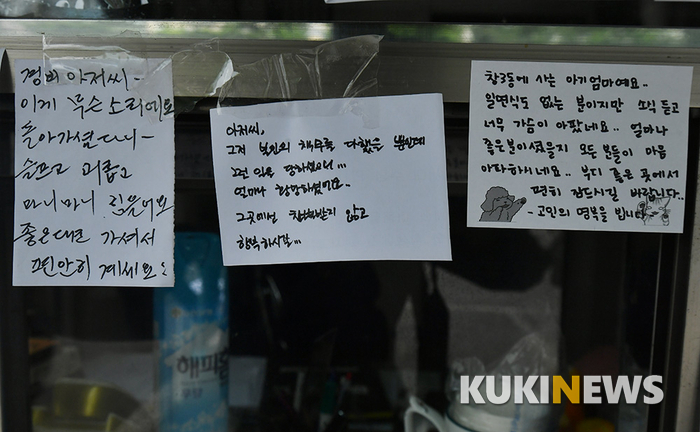 경비 아저씨-
이게 무슨 소리에요
돌아가셨다니-
슬프고 괴롭고
마니마니 힘들어요
좋은데로 가셔서
편안히 계세요:
아저씨,
그저 본인의 책무를 다했을 뿐인데
그런 일을 당하셨으니...
얼마나 황망하셨어요..
그곳에선 침해받지 않고
행복하시길...
창3동에 사는 아기엄마예요..
일면식도 없는 분이지만 소식 듣고
너무 가슴이 아팠네요.. 얼마나
좋은분이셨을지 모든 분들이 마음
아파하시네요.. 부디 좋은 곳에서
편히 잠드시길 바랍니다..
- 고인의 명복을 빕니다
해피홈
KUKINEWS